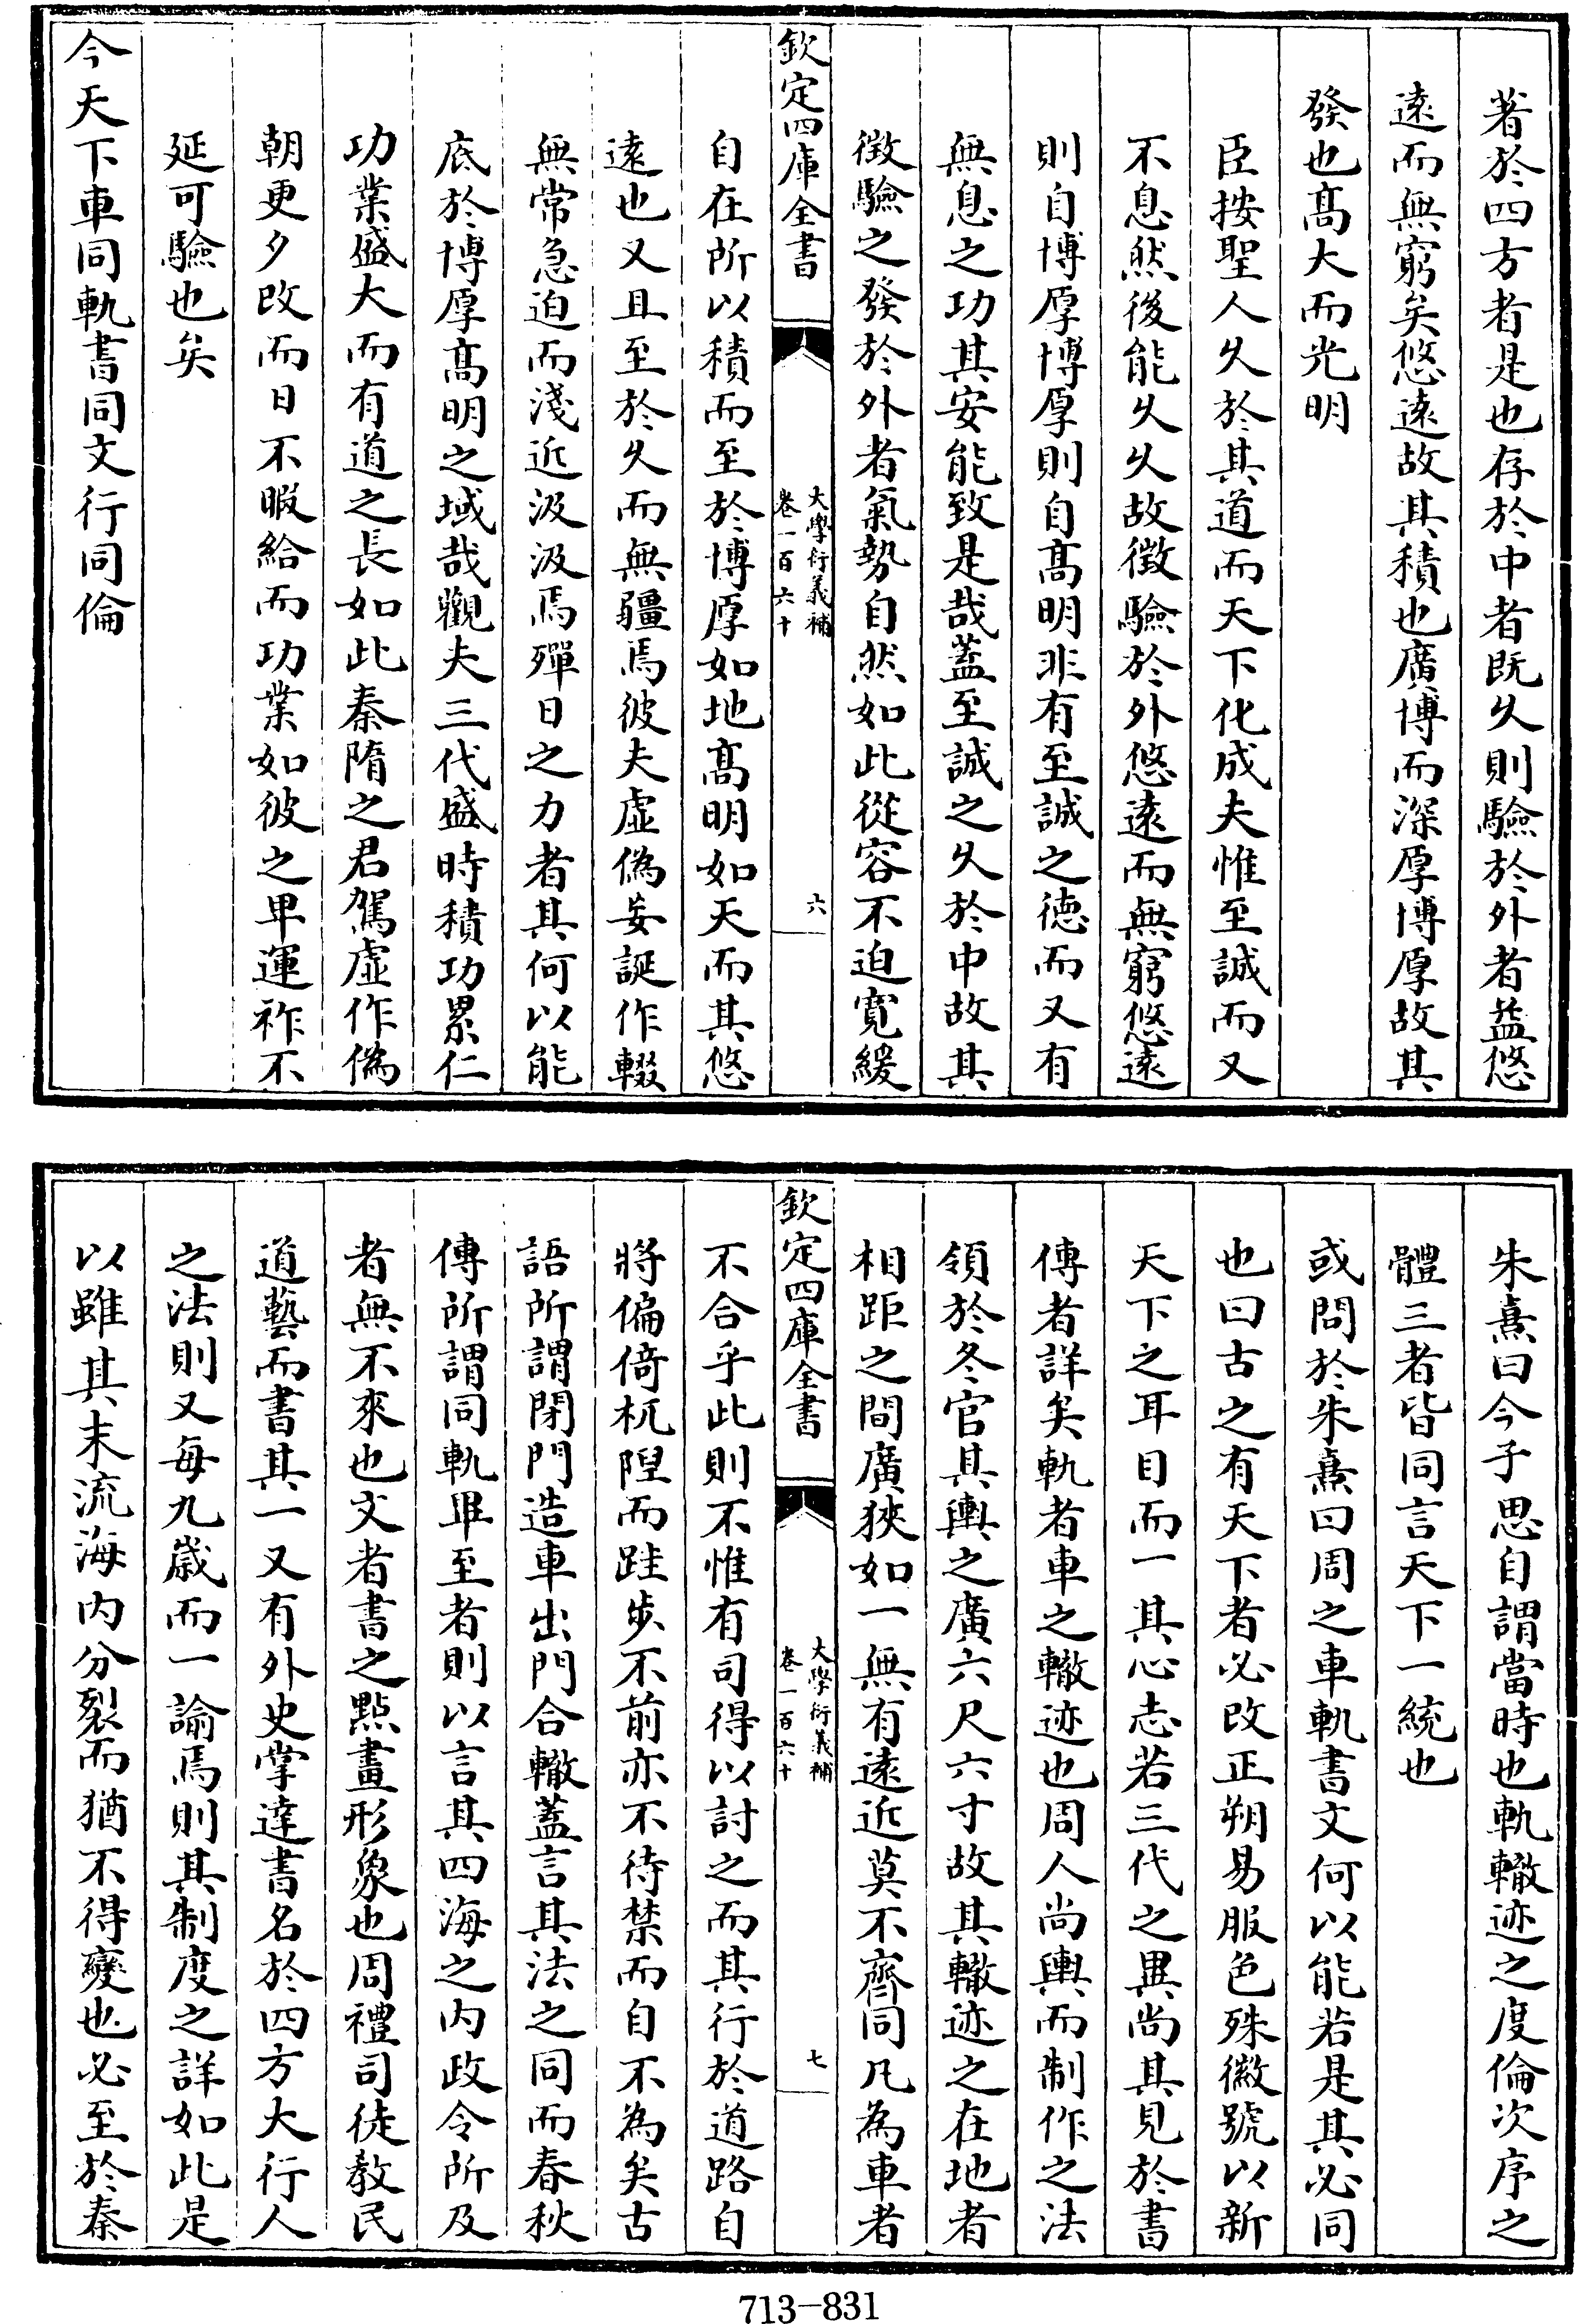 著於四方者是也存於中者既久則驗於外者益悠
遠而無窮矣悠遠故其積也廣博而深厚博厚故其
發也髙大而光明
臣按聖人久於其道而天下化成夫惟至誠而又
不息然後能久久故徴驗於外悠遠而無窮悠遠
則自博厚博厚則自髙明非有至誠之德而又有
無息之功其安能致是哉蓋至誠之久於中故其
徴驗之發於外者氣勢自然如此從容不迫寛緩
欽定四庫全書
大學衍義補
卷一百六十
六
自在所以積而至於博厚如地髙明如天而其悠
遠也又且至於久而無疆焉彼夫虚偽妄誕作輟
無常急迫而淺近汲汲焉殫日之力者其何以能
底於博厚髙明之域哉觀夫三代盛時積功累仁
功業盛大而有道之長如此秦隋之君駕虚作偽
朝更夕改而日不暇給而功業如彼之卑運祚不
延可驗也矣
今天下車同軌書同文行同倫
朱熹曰今子思自謂當時也軌轍迹之度倫次序之
體三者皆同言天下一統也
或問於朱熹曰周之車軌書文何以能若是其必同
也曰古之有天下者必改正朔易服色殊徽號以新
天下之耳目而一其心志若三代之異尚其見於書
傳者詳矣軌者車之轍迹也周人尚輿而制作之法
領於冬官其輿之廣六尺六寸故其轍迹之在地者
相距之間廣狹如一無有遠近莫不齊同凡為車者
欽定四庫全書
大學衍義補
卷一百六十
七
不合乎此則不惟有司得以討之而其行於道路自
將偏倚杌隉而跬步不前亦不待禁而自不為矣古
語所謂閉門造車出門合轍蓋言其法之同而春秋
傳所謂同軌畢至者則以言其四海之内政令所及
者無不來也文者書之㸃畫形象也周禮司徒教民
道藝而書其一又有外史掌達書名於四方大行人
之法則又每九嵗而一諭焉則其制度之詳如此是
以雖其末流海内分裂而猶不得變也必至於秦
713-831